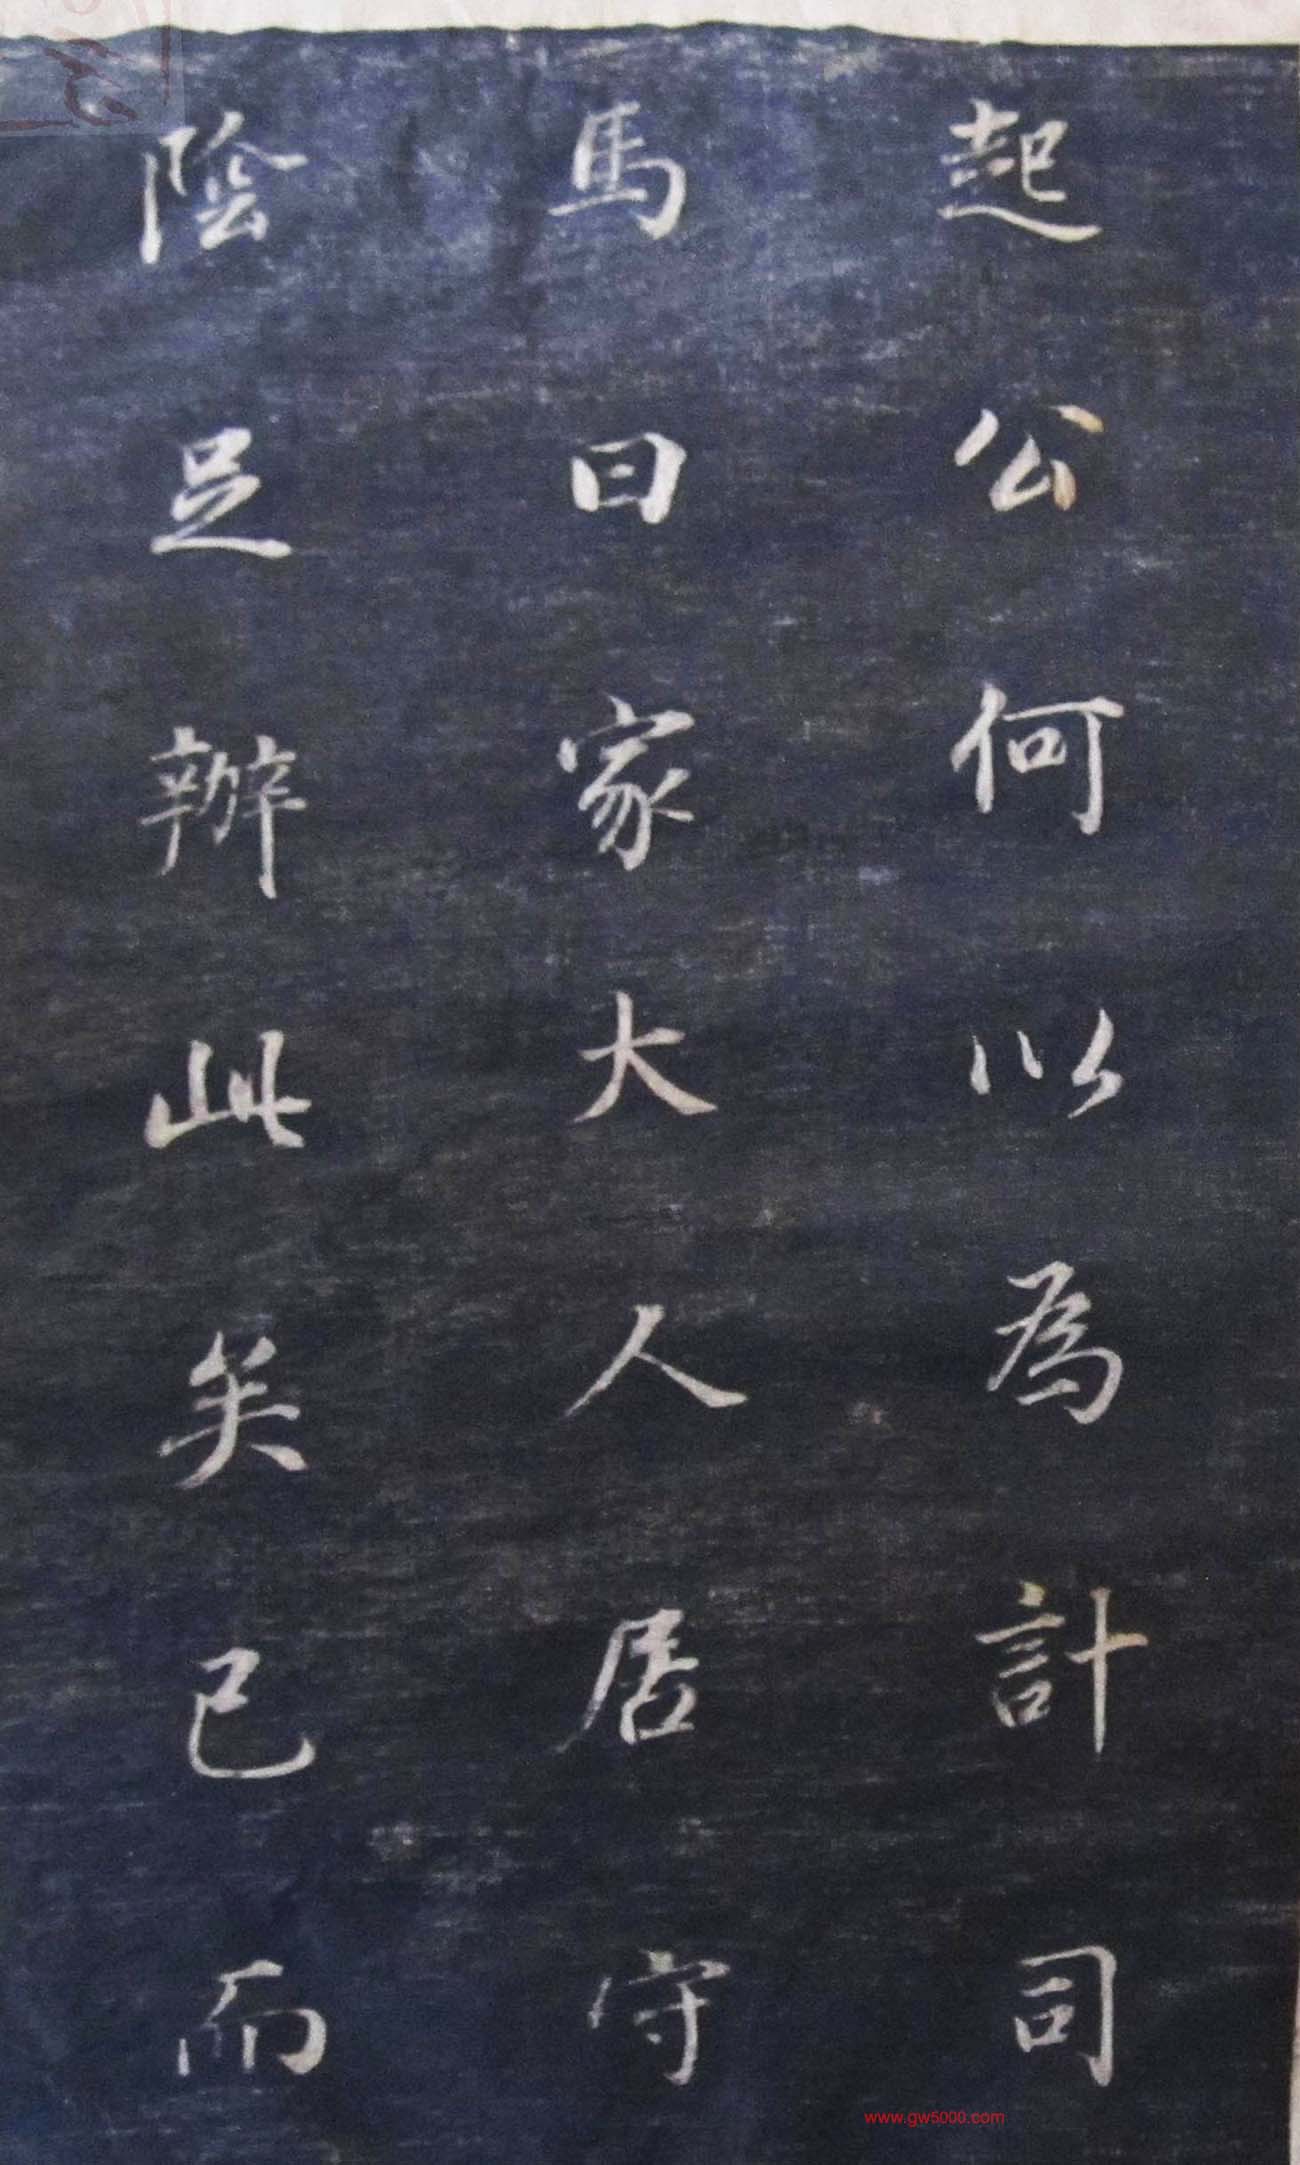 起公何以為計司
馬曰家大人居守
陰足辦此矣已而
www.gw5000.com